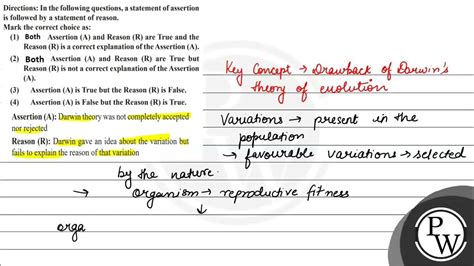 Directions: In the following questions, a statement of assertion
is followed by a statement of reason.
Mark the correct choice as:
(1) Both Assertion (A) and Reason (R) are True and the
Reason (R) is a correct explanation of the Assertion (A).
(2) Both Assertion (A) and Reason (R) are True but
Reason (R) is not a correct explanation of the Assertion
(A).
(3) Assertion (A) is True but the Reason (R) is False.
(4) Assertion (A) is False but the Reason (R) is True.
Assertion (A): Darwin theory was not completely accepted
nor rejected
Reason (R): Darwin gave an idea about the variation but
fails to explain the reason of that variation
Key Concept → Drawback of Darwin's
theory of evolution
Variations → present in the
population
→ favourable variations → selected
by the nature.
→ organism → reproductive fitness
↓
orga
P
W